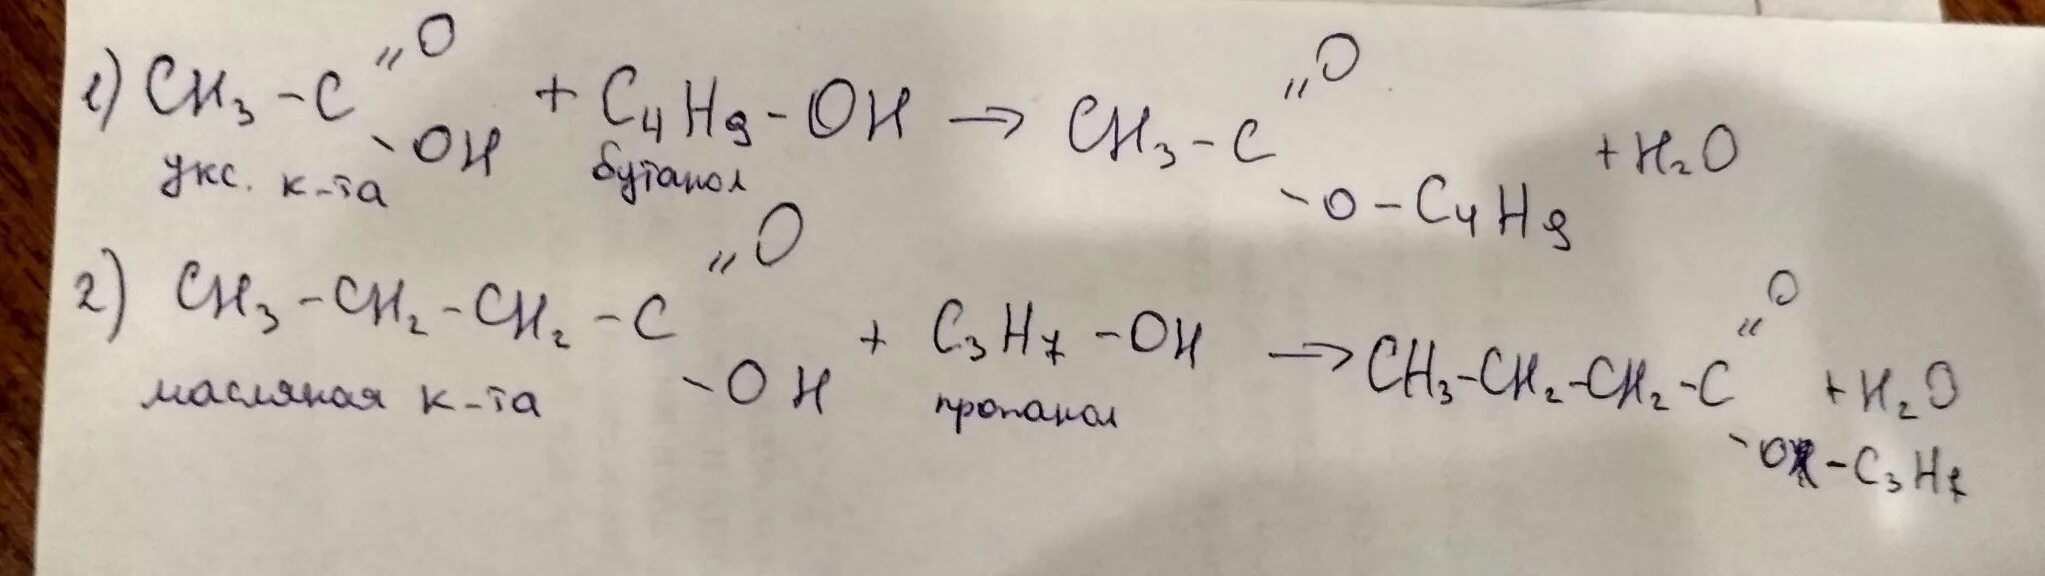 1) CH₃-C //O -OH + C₄H₉-OH → CH₃-C //O -O-C₄H₉ + H₂O
укс. к-та бутанол
2) CH₃-CH₂-CH₂-C //O -OH + C₃H₇-OH → CH₃-CH₂-CH₂-C //O -O-C₃H₇ + H₂O
масляная к-та пропанол